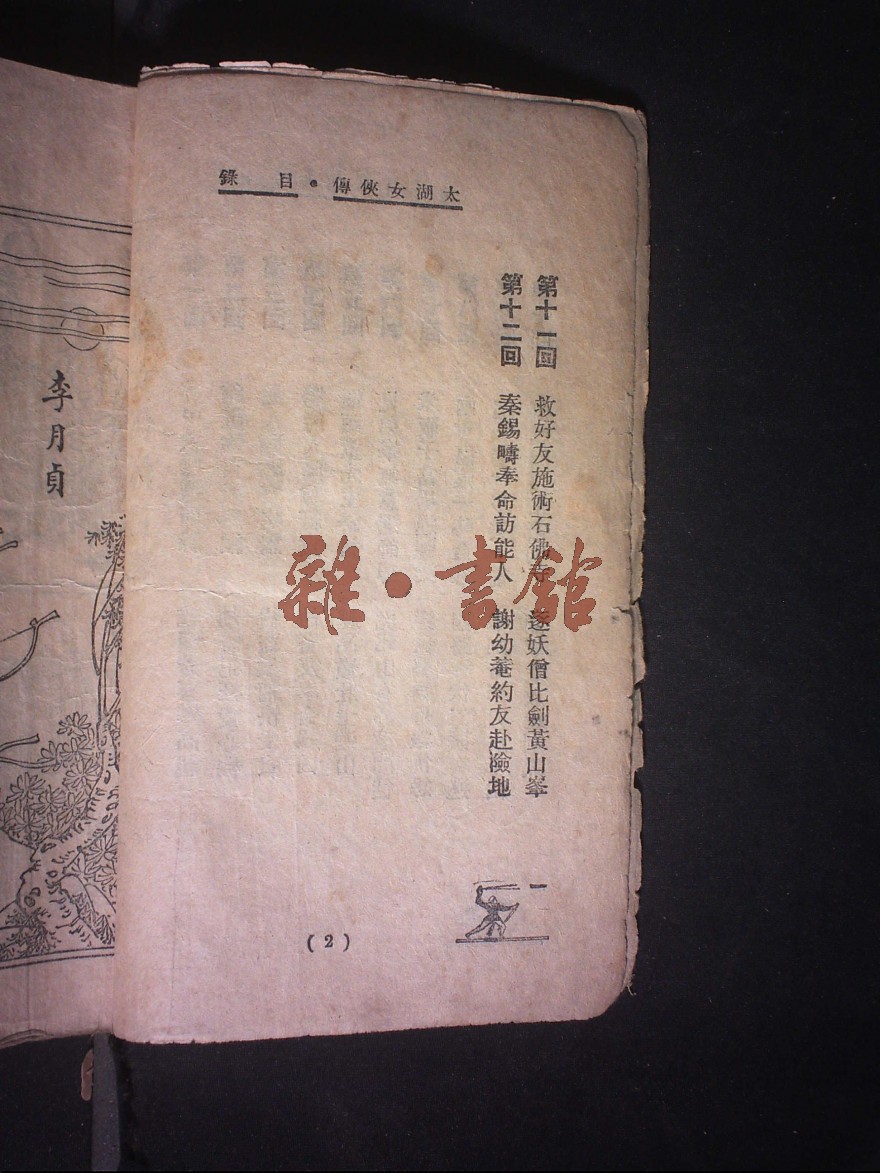 太湖女俠傳·目錄
第十一回　救好友施術石佛寺　逐妖僧比劍黃山峯
第十二回　秦錫疇奉命訪能人　謝幼菴約友赴險地
(2)
李月貞
雜·書館